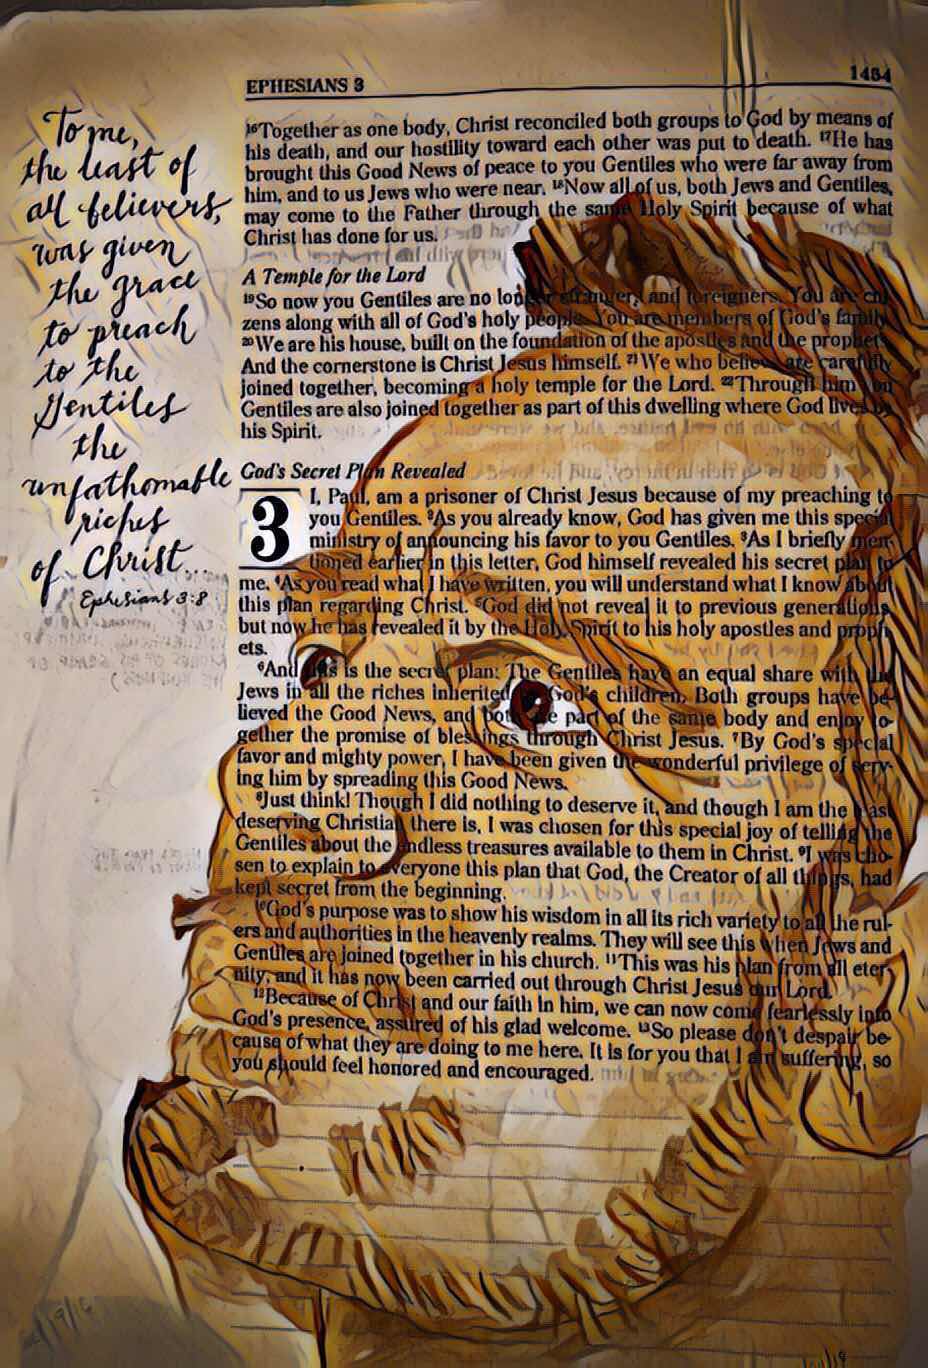 EPHESIANS 3
1484
To me,
the least of
all believers,
was given
the grace
to preach
to the
Gentiles
the
unfathomable
riches
of Christ...
Ephesians 3:8
16Together as one body, Christ reconciled both groups to God by means of
his death, and our hostility toward each other was put to death. 17He has
brought this Good News of peace to you Gentiles who were far away from
him, and to us Jews who were near. 18Now all of us, both Jews and Gentiles,
may come to the Father through the same Holy Spirit because of what
Christ has done for us.
A Temple for the Lord
19So now you Gentiles are no longer strangers and foreigners. You are citi-
zens along with all of God's holy people. You are members of God's family.
20We are his house, built on the foundation of the apostles and the prophets.
And the cornerstone is Christ Jesus himself. 21We who believe are carefully
joined together, becoming a holy temple for the Lord. 22Through him you
Gentiles are also joined together as part of this dwelling where God lives by
his Spirit.
God's Secret Plan Revealed
3 I, Paul, am a prisoner of Christ Jesus because of my preaching to
you Gentiles. 2As you already know, God has given me this special
ministry of announcing his favor to you Gentiles. 3As I briefly men-
tioned earlier in this letter, God himself revealed his secret plan to
me. 4As you read what I have written, you will understand what I know about
this plan regarding Christ. 5God did not reveal it to previous generations,
but now he has revealed it by the Holy Spirit to his holy apostles and proph-
ets.
6And this is the secret plan: The Gentiles have an equal share with the
Jews in all the riches inherited by God's children. Both groups have be-
lieved the Good News, and both are part of the same body and enjoy to-
gether the promise of blessings through Christ Jesus. 7By God's special
favor and mighty power, I have been given the wonderful privilege of serv-
ing him by spreading this Good News.
8Just think! Though I did nothing to deserve it, and though I am the least
deserving Christian there is, I was chosen for this special joy of telling the
Gentiles about the endless treasures available to them in Christ. 9I was cho-
sen to explain to everyone this plan that God, the Creator of all things, had
kept secret from the beginning.
10God's purpose was to show his wisdom in all its rich variety to all the rul-
ers and authorities in the heavenly realms. They will see this when Jews and
Gentiles are joined together in his church. 11This was his plan from all eter-
nity, and it has now been carried out through Christ Jesus our Lord.
12Because of Christ and our faith in him, we can now come fearlessly into
God's presence, assured of his glad welcome. 13So please don't despair be-
cause of what they are doing to me here. It is for you that I am suffering, so
you should feel honored and encouraged.